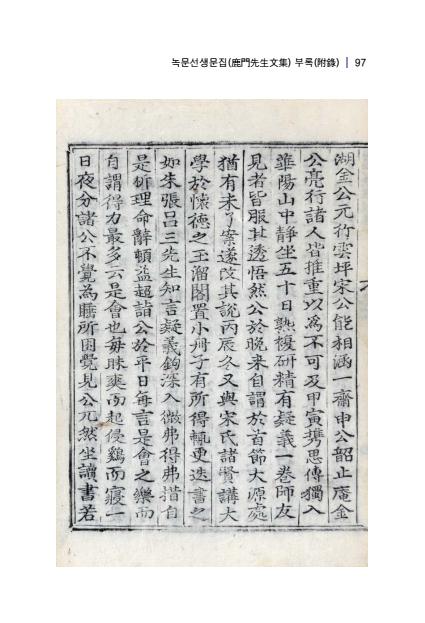 녹문선생문집(鹿門先生文集) 부록(附錄) | 97
湖金公元行雲坪宋公能相涵一齋申公韶止庵金
公亮行諸人皆推重以爲不可及甲寅携思傳獨入
華陽山中靜坐五十日熟複硏精有疑義一卷師友
見者皆服其透悟然公於晩來自謂於首節大源處
猶有未了案遂改其說丙辰冬又與宋氏諸賢講大
學於懷德之玉溜閣置小冊子有所得輒更迭書之
如朱張呂三先生知言疑義鉤深入微弗得弗措自
是析理命辭頓益超詣公於平日每言是會之樂而
自謂得力最多云是會也每昧爽而起侵鷄而寢一
日夜分諸公不覺為睡所困覺見公兀然坐讀書若